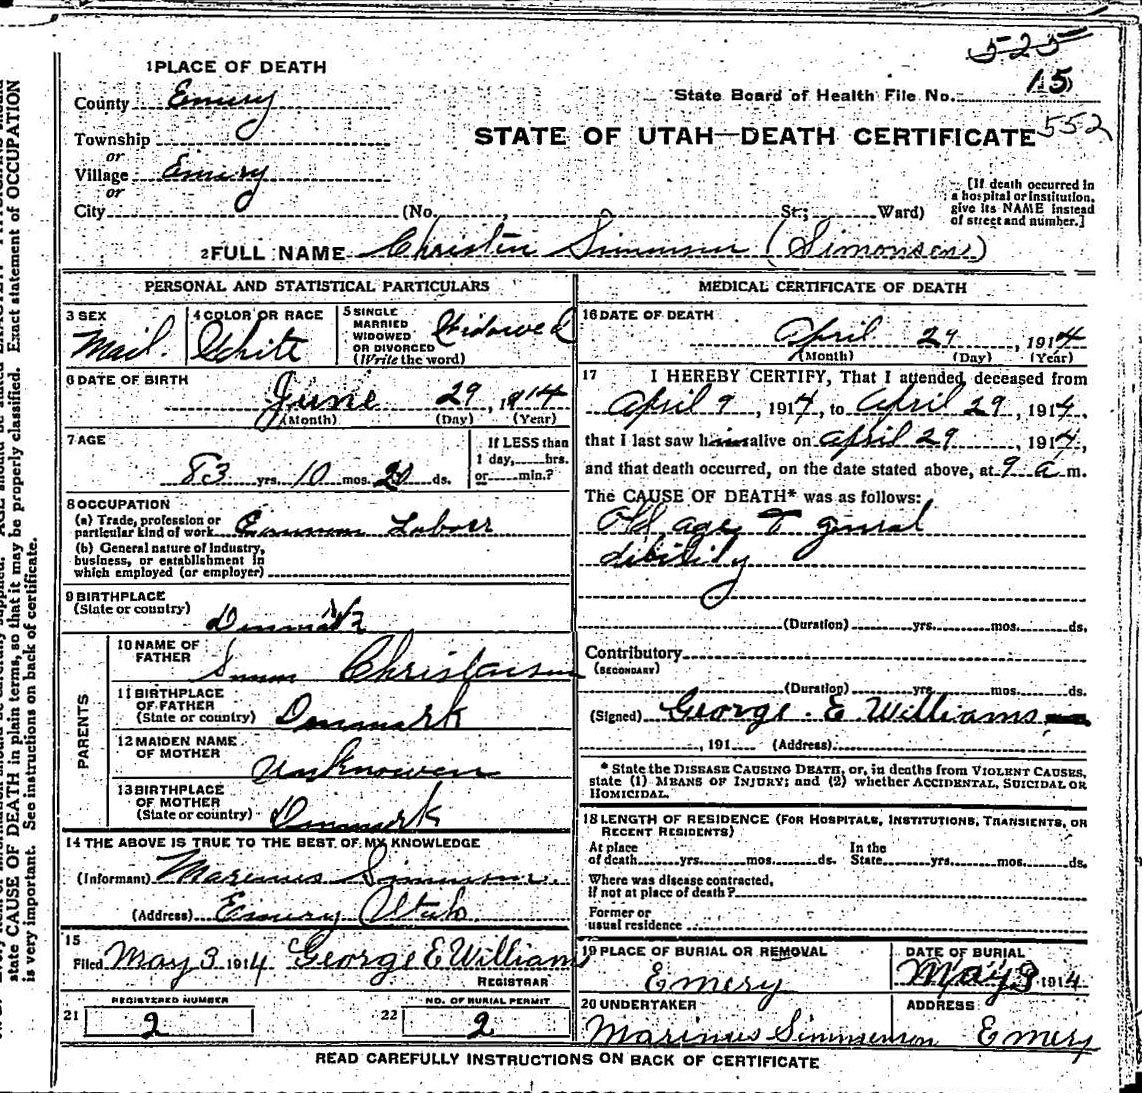 525
15
1 PLACE OF DEATH
County Emery
State Board of Health File No.
Township
STATE OF UTAH—DEATH CERTIFICATE 552
or
Village Emery
or
City (No. , St.; Ward)
[If death occurred in
a hospital or institution,
give its NAME instead
of street and number.]
2 FULL NAME Christin Simmson (Simonsen)
PERSONAL AND STATISTICAL PARTICULARS
3 SEX
Mail.
4 COLOR OR RACE
White
5 SINGLE
MARRIED
WIDOWED
OR DIVORCED
(Write the word)
Widowed
6 DATE OF BIRTH
June 29, 1814
(Month) (Day) (Year)
7 AGE
83 yrs. 10 mos. ds.
If LESS than
1 day, hrs.
or min.?
8 OCCUPATION
(a) Trade, profession or
particular kind of work Common Laborr
(b) General nature of industry,
business, or establishment in
which employed (or employer)
9 BIRTHPLACE
(State or country)
Denmark
PARENTS
10 NAME OF
FATHER
Christainsen
11 BIRTHPLACE
OF FATHER
(State or country) Denmark
12 MAIDEN NAME
OF MOTHER
Unknowen
13 BIRTHPLACE
OF MOTHER
(State or country) Denmark
14 THE ABOVE IS TRUE TO THE BEST OF MY KNOWLEDGE
(Informant) Marinus Simmson
(Address) Emery Utah
15
Filed May 3 1914 George E Williams
REGISTRAR
REGISTERED NUMBER
21 2
NO. OF BURIAL PERMIT
22 2
MEDICAL CERTIFICATE OF DEATH
16 DATE OF DEATH
April 29, 1914
(Month) (Day) (Year)
17 I HEREBY CERTIFY, That I attended deceased from
April 9, 1914, to April 29, 1914,
that I last saw him alive on April 29, 1914,
and that death occurred, on the date stated above, at 9 a m.
The CAUSE OF DEATH* was as follows:
Old age & genral
dibility
(Duration) yrs. mos. ds.
Contributory
(SECONDARY)
(Duration) yrs. mos. ds.
(Signed) George E Williams
, 191 (Address)
* State the DISEASE CAUSING DEATH, or, in deaths from VIOLENT CAUSES,
state (1) MEANS OF INJURY; and (2) whether ACCIDENTAL, SUICIDAL OR
HOMICIDAL.
18 LENGTH OF RESIDENCE (FOR HOSPITALS, INSTITUTIONS, TRANSIENTS, OR
RECENT RESIDENTS)
At place
of death yrs. mos. ds.
In the
State yrs. mos. ds.
Where was disease contracted,
if not at place of death?
Former or
usual residence
19 PLACE OF BURIAL OR REMOVAL
Emery
DATE OF BURIAL
May 3 1914
20 UNDERTAKER
Marinus Simmenson
ADDRESS
Emery
READ CAREFULLY INSTRUCTIONS ON BACK OF CERTIFICATE
state CAUSE OF DEATH in plain terms, so that it may be properly classified. Exact statement of OCCUPATION
is very important. See instructions on back of certificate.